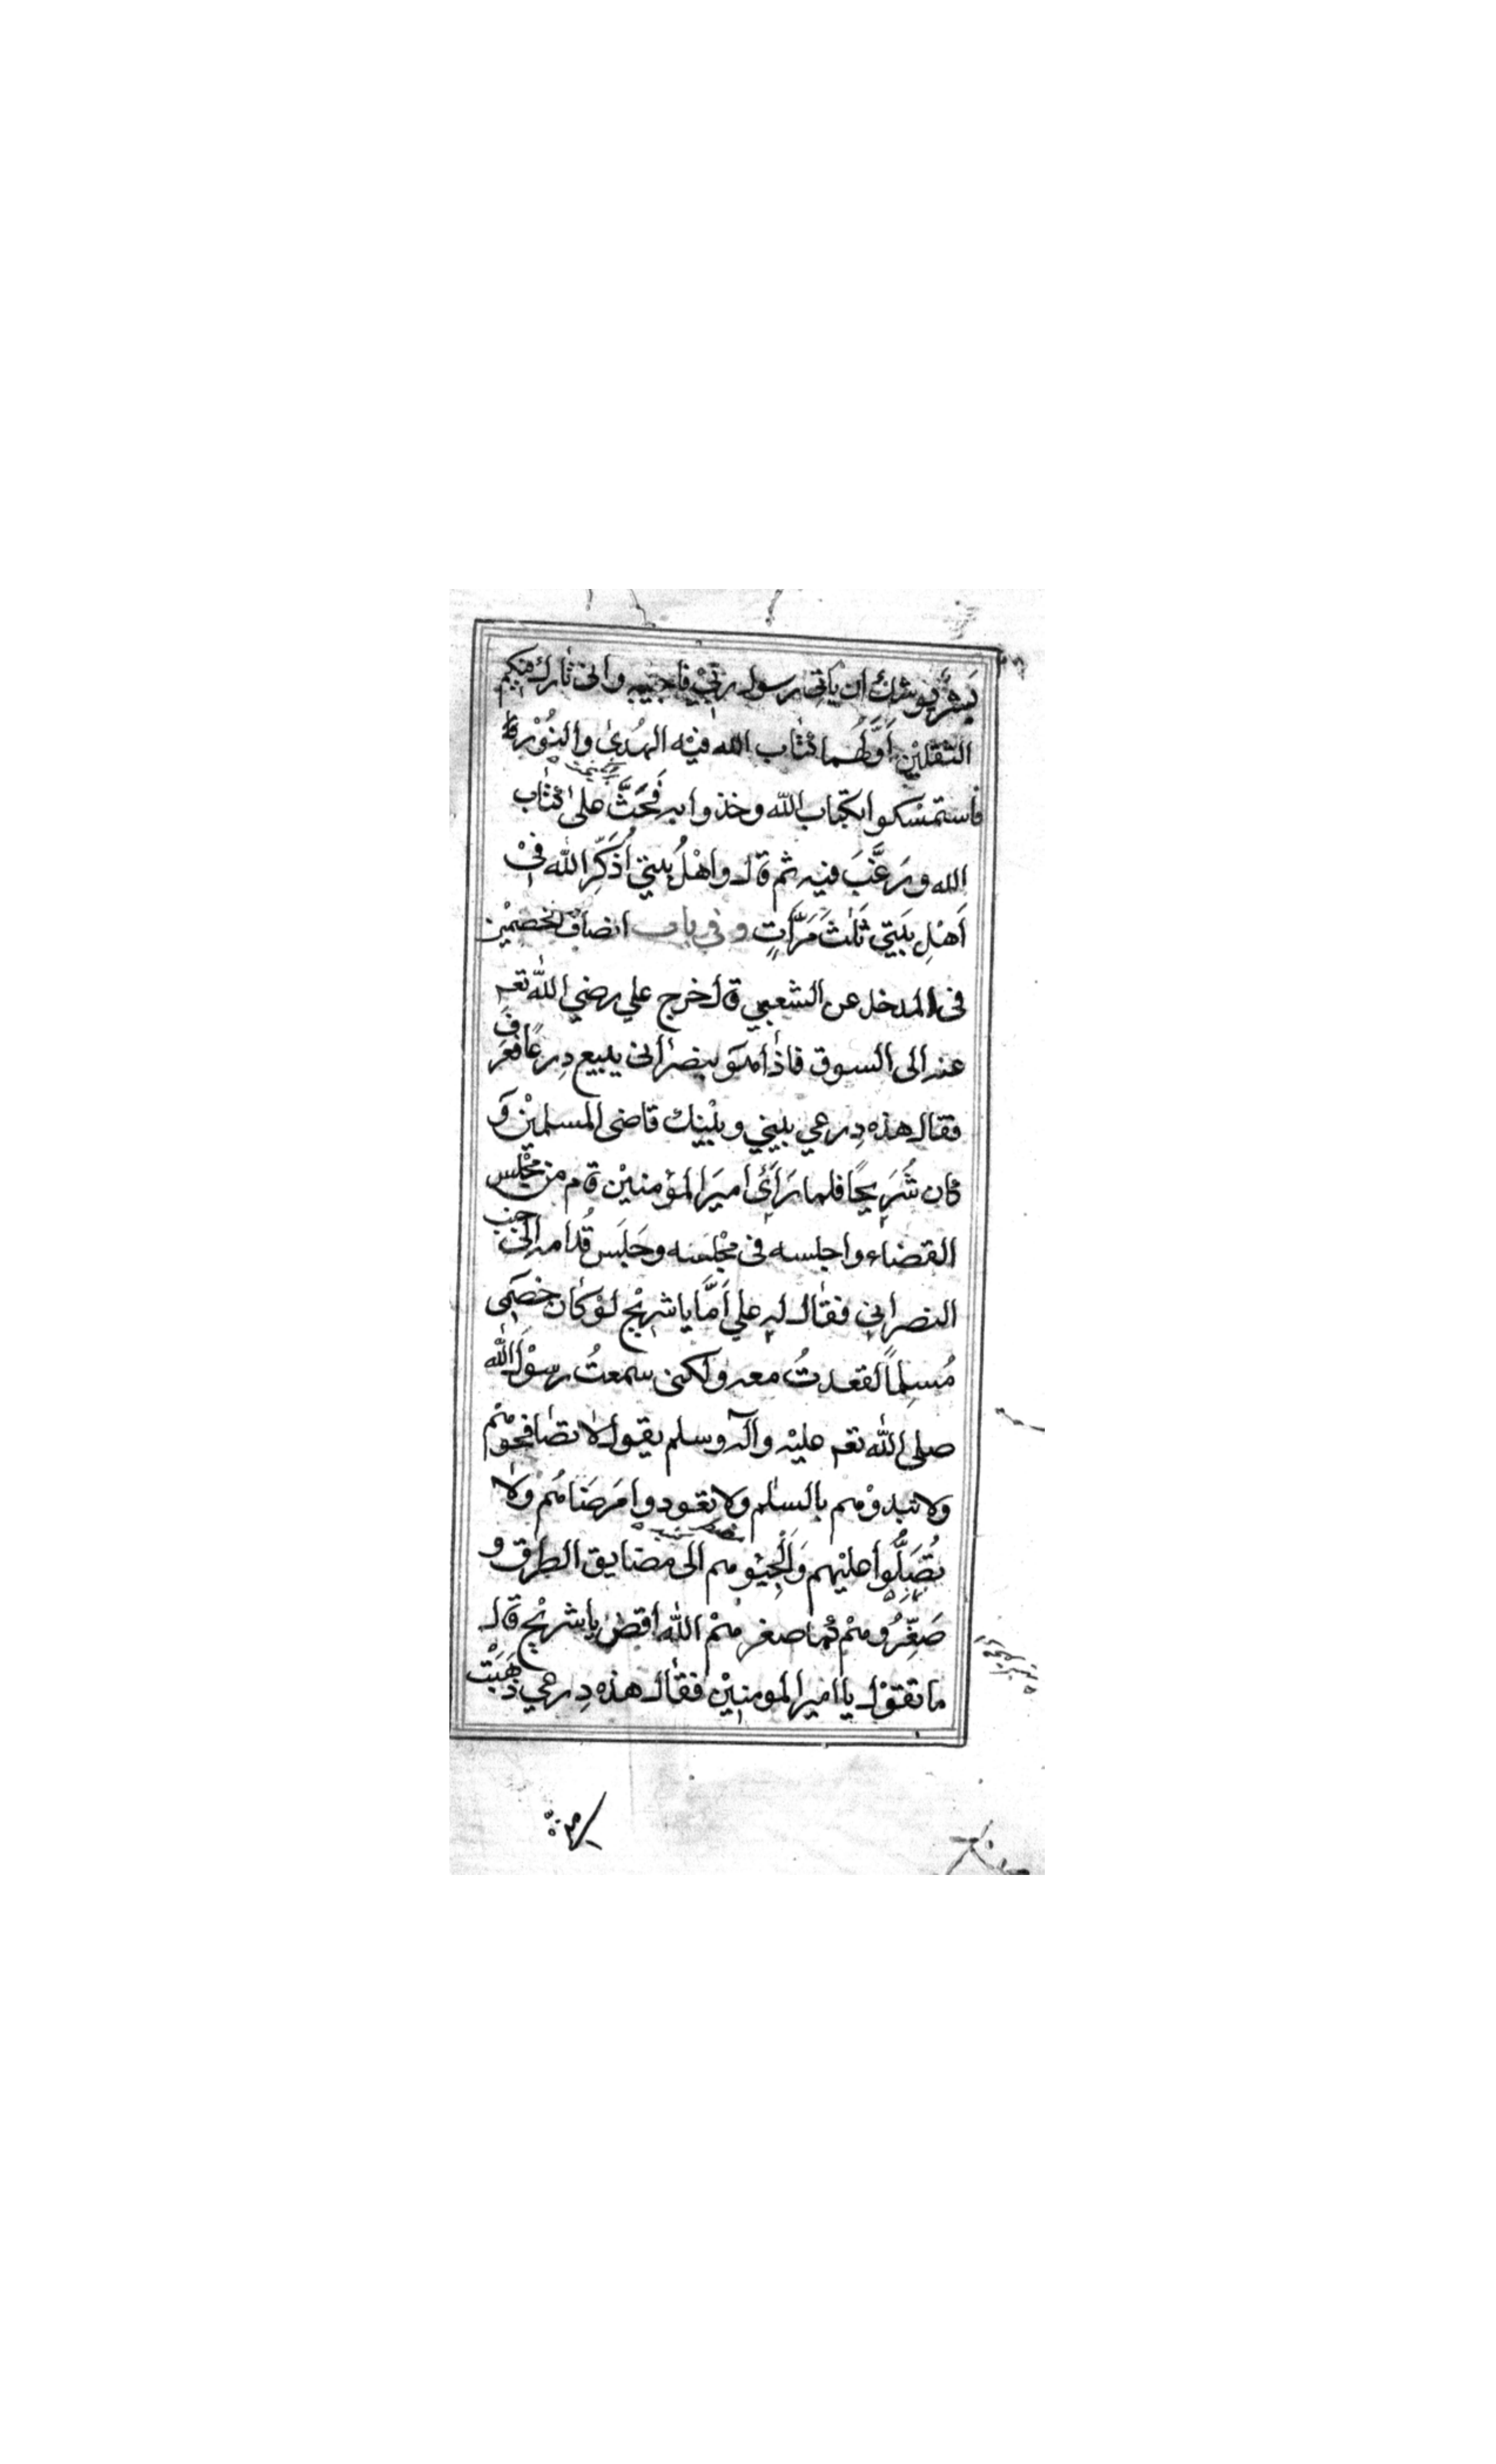 بَشرٌ يوشك ان ياتى رسول ربّي فاجيبه وانى تارك فيكم
الثقلين اوّلهما كتاب الله فيه الهُدىٰ والنُّوْر
فاستمسكوا بكتاب الله وخذوا به فَحَثَّ على كتاب
الله ورَغَّبَ فيه ثم قال واهْلُ بيتي اُذَكِّرُ الله فىْ
اَهْلِ بَيتي ثَلٰثَ مَرَّاتٍ وفي باب انصاف الخصمين
فى المدخل عن الشعبي قال خرج علي رضي الله تعـ
عنه الى السوق فاذا هو بنصرانى يبيع دِرعًا فعرف
فقال هذه دِرعي بيني وبيْنك قاضى المسلمين وَ
كان شُرَيحًا فلما رَاَىٰ اميرَ المؤمنين قام من مجْلس
القضاء واجلسه فى مجْلسه وجَلَس قُدامه الىٰ جنب
النصرانى فقال له علي اَمَّا يا شريْح لوْ كان خصمى
مُسلِمًا لقعدتُ معه ولكنى سمعتُ رسوْلَ الله
صلى الله تعـ عليه وآله وسلم يقول لا تصافحوهم
ولا تبدوْهم بالسلٰم ولا تعودوا مَرضاهُم ولا
تُصَلُّوا عليْهم وَالْجِئوهم الى مضايق الطرق و
صَغِّرُوهمْ كما صغرهمْ الله اقض يا شريْح قال
ما تقوْل يا امير المومنيْن فقال هذه دِرعي ذهبَتْ